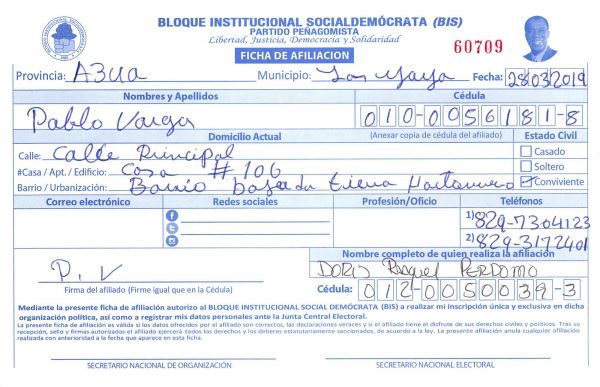 BLOQUE INSTITUCIONAL SOCIALDEMÓCRATA (BIS)
PARTIDO PEÑAGOMISTA
Libertad, Justicia, Democracia y Solidaridad
FICHA DE AFILIACION
60709
Provincia: A3ua Municipio: Los yaya Fecha: 28/03/2019
Nombres y Apellidos Cédula
Pablo Vargas 010-0056181-8
Domicilio Actual (Anexar copia de cédula del afiliado) Estado Civil
Calle: Calle Principal Casado
#Casa / Apt. / Edificio: Casa #106 Soltero
Barrio / Urbanización: Barrio Conviviente
Correo electrónico Redes sociales Profesión/Oficio Teléfonos
1) 829-7304123
2) 829-3172401
Nombre completo de quien realiza la afiliación
P. V DORIS Raquel PERDOMO
Firma del afiliado (Firme igual que en la Cédula) Cédula: 012-0050039-3
Mediante la presente ficha de afiliación autorizo al BLOQUE INSTITUCIONAL SOCIAL DEMÓCRATA (BIS) a realizar mi inscripción única y exclusiva en dicha
organización política, así como a registrar mis datos personales ante la Junta Central Electoral.
La presente ficha de afiliación es válida si los datos ofrecidos por el afiliado son correctos, las declaraciones veraces y si el afiliado tiene el disfrute de sus derechos civiles y políticos. Tras su
recepción, sello y firmas autorizadas el afiliado ejercerá todos los derechos y los deberes estatutariamente sancionados, de acuerdo a la ley. La presente afiliación anula cualquier afiliación
realizada con anterioridad a la fecha que aparece en esta ficha.
SECRETARIO NACIONAL DE ORGANIZACIÓN SECRETARIO NACIONAL ELECTORAL